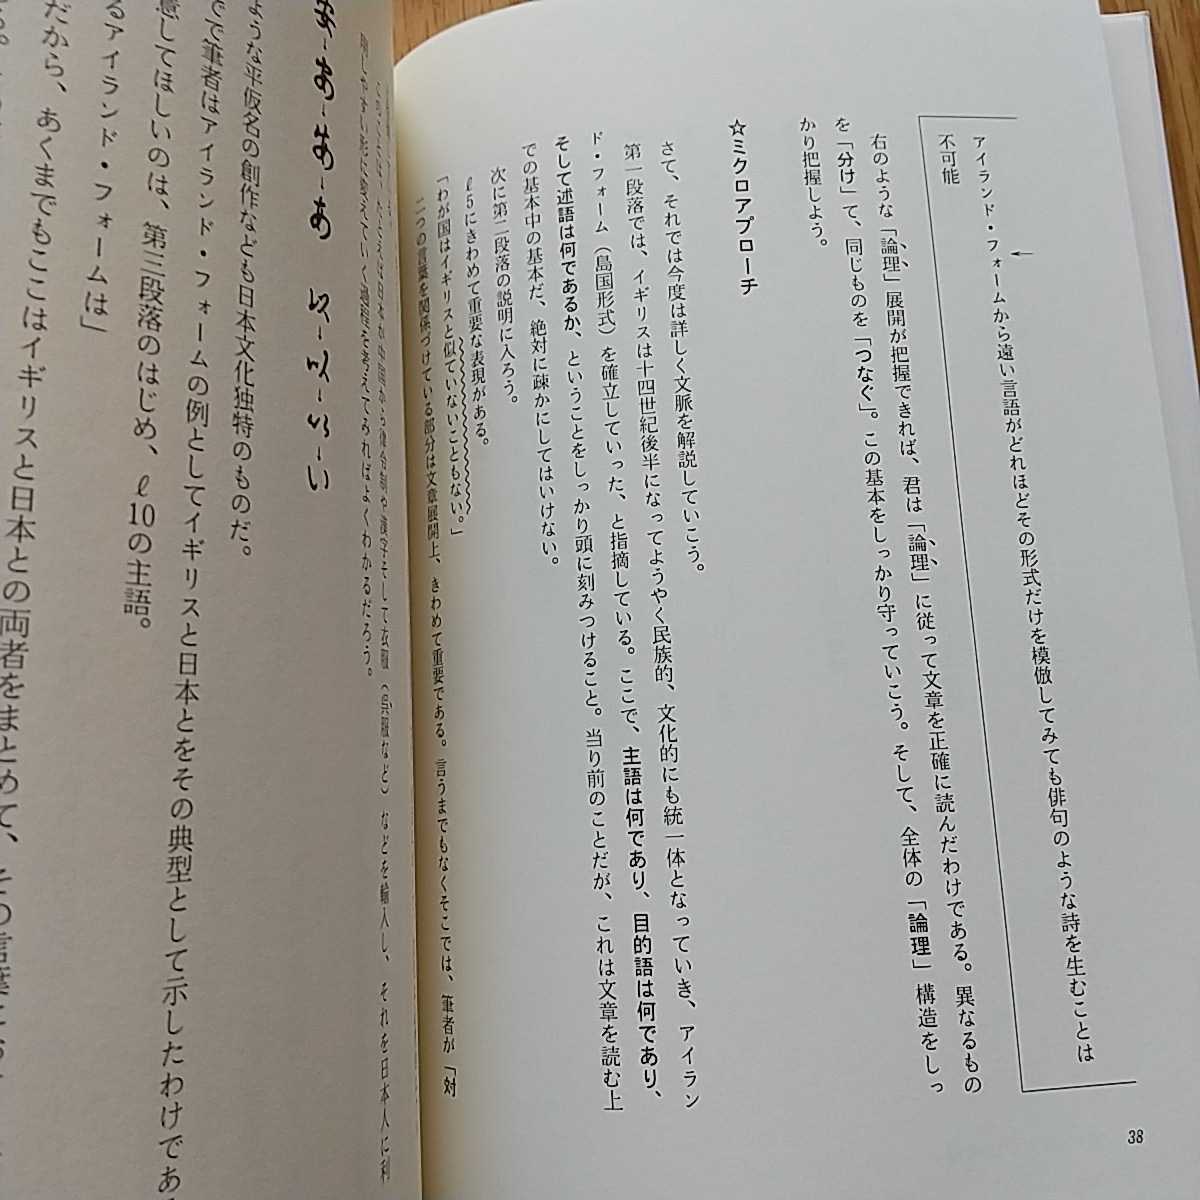 アイランド・フォームから遠い言語がどれほどその形式だけを模倣してみても俳句のような詩を生むことは
不可能
右のような「論理」展開が把握できれば、君は「論理」に従って文章を正確に読んだわけである。異なるもの
を「分け」て、同じものを「つなぐ」。この基本をしっかり守っていこう。そして、全体の「論理」構造をしっ
かり把握しよう。
☆ミクロアプローチ
さて、それでは今度は詳しく文脈を解説していこう。
第一段落では、イギリスは十四世紀後半になってようやく民族的、文化的にも統一体となっていき、アイラン
ド・フォーム（島国形式）を確立していった、と指摘している。ここで、主語は何であり、目的語は何であり、
そして述語は何であるか、ということをしっかり頭に刻みつけること。当り前のことだが、これは文章を読む上
での基本中の基本だ、絶対に疎かにしてはいけない。
次に第二段落の説明に入ろう。
ℓ5にきわめて重要な表現がある。
「わが国はイギリスと似ていないこともない。」
二つの言葉を関係づけている部分は文章展開上、きわめて重要である。言うまでもなくそこでは、筆者が「対
38
日本が中国から律令制や漢字そして衣服（呉服など）などを輸入し、それを日本人に利
用しやすい形に変えていく過程を考えてみればよくわかるだろう。
い
ような平仮名の創作なども日本文化独特のものだ。
で筆者はアイランド・フォームの例としてイギリスと日本とをその典型として示したわけであ
意してほしいのは、第三段落のはじめ、ℓ10の主語。
るアイランド・フォームは」
だから、あくまでもここはイギリスと日本との両者をまとめて、その言葉